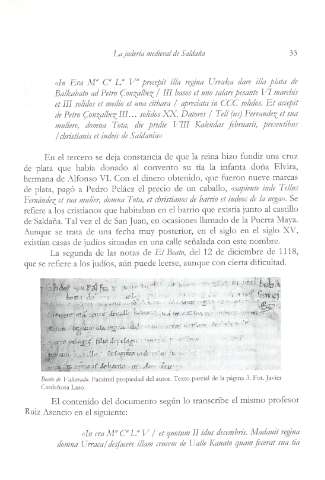 La judería medieval de Saldaña 33
«In Era Mª Cª L.ª Vª precepit illa regina Urraka dare illa plata de
Balkabato ad Petro Conzalbez / III bassos et uno salare pesante VI marchis
et III solidos et medio et una citbara / apreciata in CCC solidos. Et accepit
de Petro Conzalbez III... solidos XX. Datores / Tell (us) Ferrandez et sua
muliere, domna Tota, die predie VIII Kalendas februarii, presentibus
/christianis et iudeis de Saldania»
En el tercero se deja constancia de que la reina hizo fundir una cruz
de plata que había donado al convento su tía la infanta doña Elvira,
hermana de Alfonso VI. Con el dinero obtenido, que fueron nueve marcas
de plata, pagó a Pedro Peláez el precio de un caballo, «sapiente inde Tellus
Fernández et sua mulier, domna Tota, et christianos de barrio et iudeos de la vega». Se
refiere a los cristianos que habitaban en el barrio que existía junto al castillo
de Saldaña. Tal vez el de San Juan, en ocasiones llamado de la Puerta Maya.
Aunque se trata de una fecha muy posterior, en el siglo en el siglo XV,
existían casas de judíos situadas en una calle señalada con este nombre.
La segunda de las notas de El Beato, del 12 de diciembre de 1118,
que se refiere a los judíos, aún puede leerse, aunque con cierta dificultad.
Beato de Valcavado. Facsímil propiedad del autor. Texto parcial de la página 3. Fot. Javier
Cardeñosa Laso
El contenido del documento según lo transcribe el mismo profesor
Ruiz Asencio en el siguiente:
«In era Mª Cª L.ª V / et quotum II idus decembris. Mandavi regina
domna Urraca/ desfacere illam crucem de Valle Kavato quam fecerat sua tia